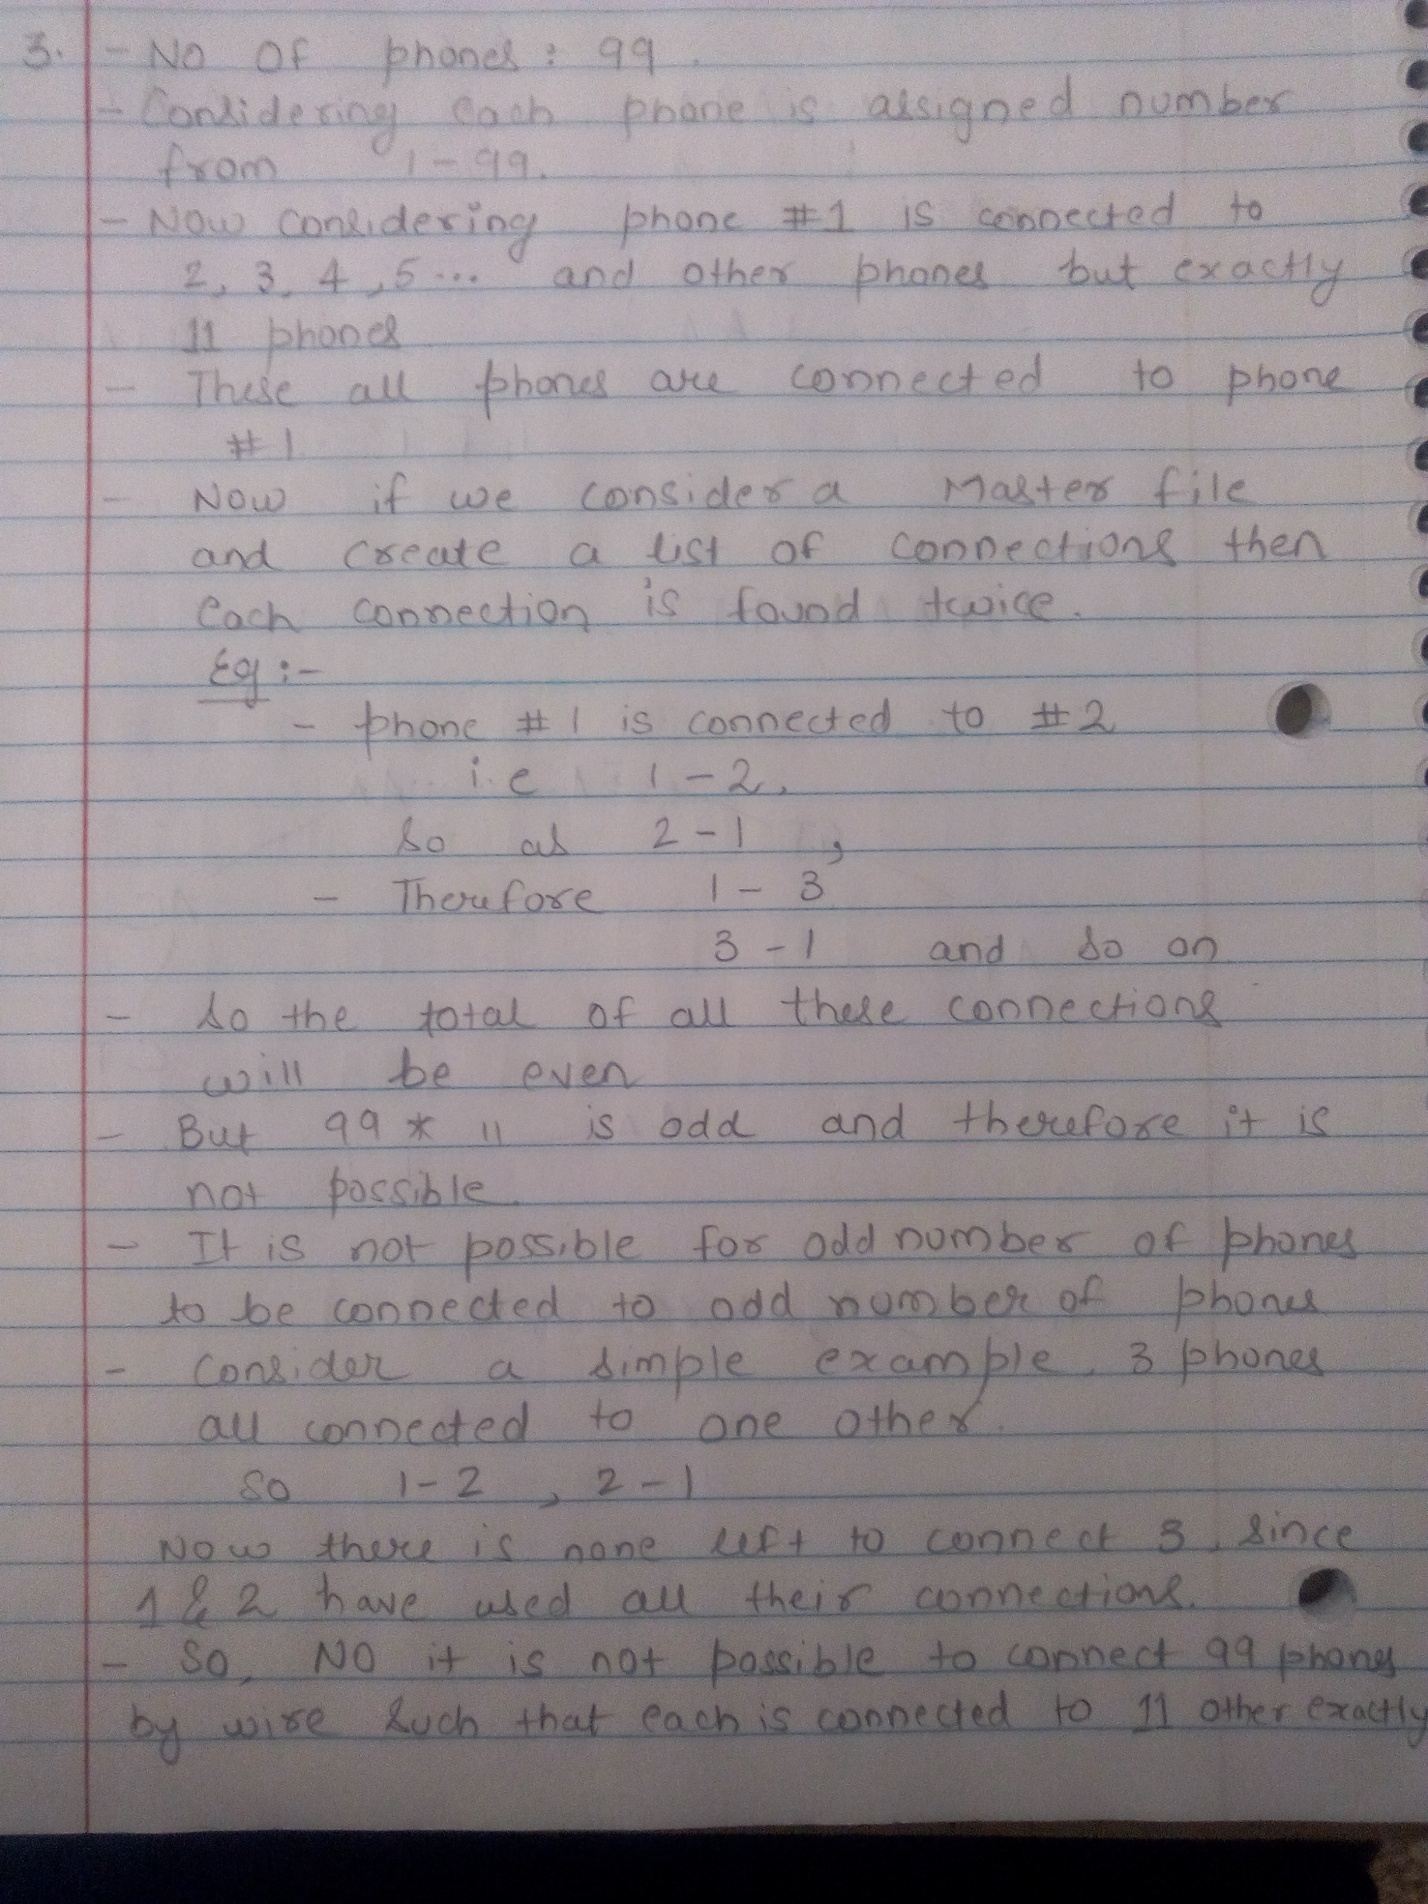 3. - No OF phones : 99.
- Considering each phone is assigned number
from 1-99.
- Now considering phone #1 is connected to
2, 3, 4, 5... and other phones but exactly
11 phones
- These all phones are connected to phone
#1
- Now if we consider a Master file
and create a list of connections then
each connection is found twice.
Eg :-
- phone #1 is connected to #2
i.e 1-2,
so as 2-1,
- Therefore 1-3
3-1 and so on
- so the total of all these connections
will be even
- But 99 * 11 is odd and therefore it is
not possible.
- It is not possible for odd number of phones
to be connected to odd number of phones
- consider a simple example. 3 phones
all connected to one other.
so 1-2, 2-1
Now there is none left to connect 3, since
1 & 2 have used all their connections.
- So, NO it is not possible to connect 99 phones
by wire such that each is connected to 11 other exactly